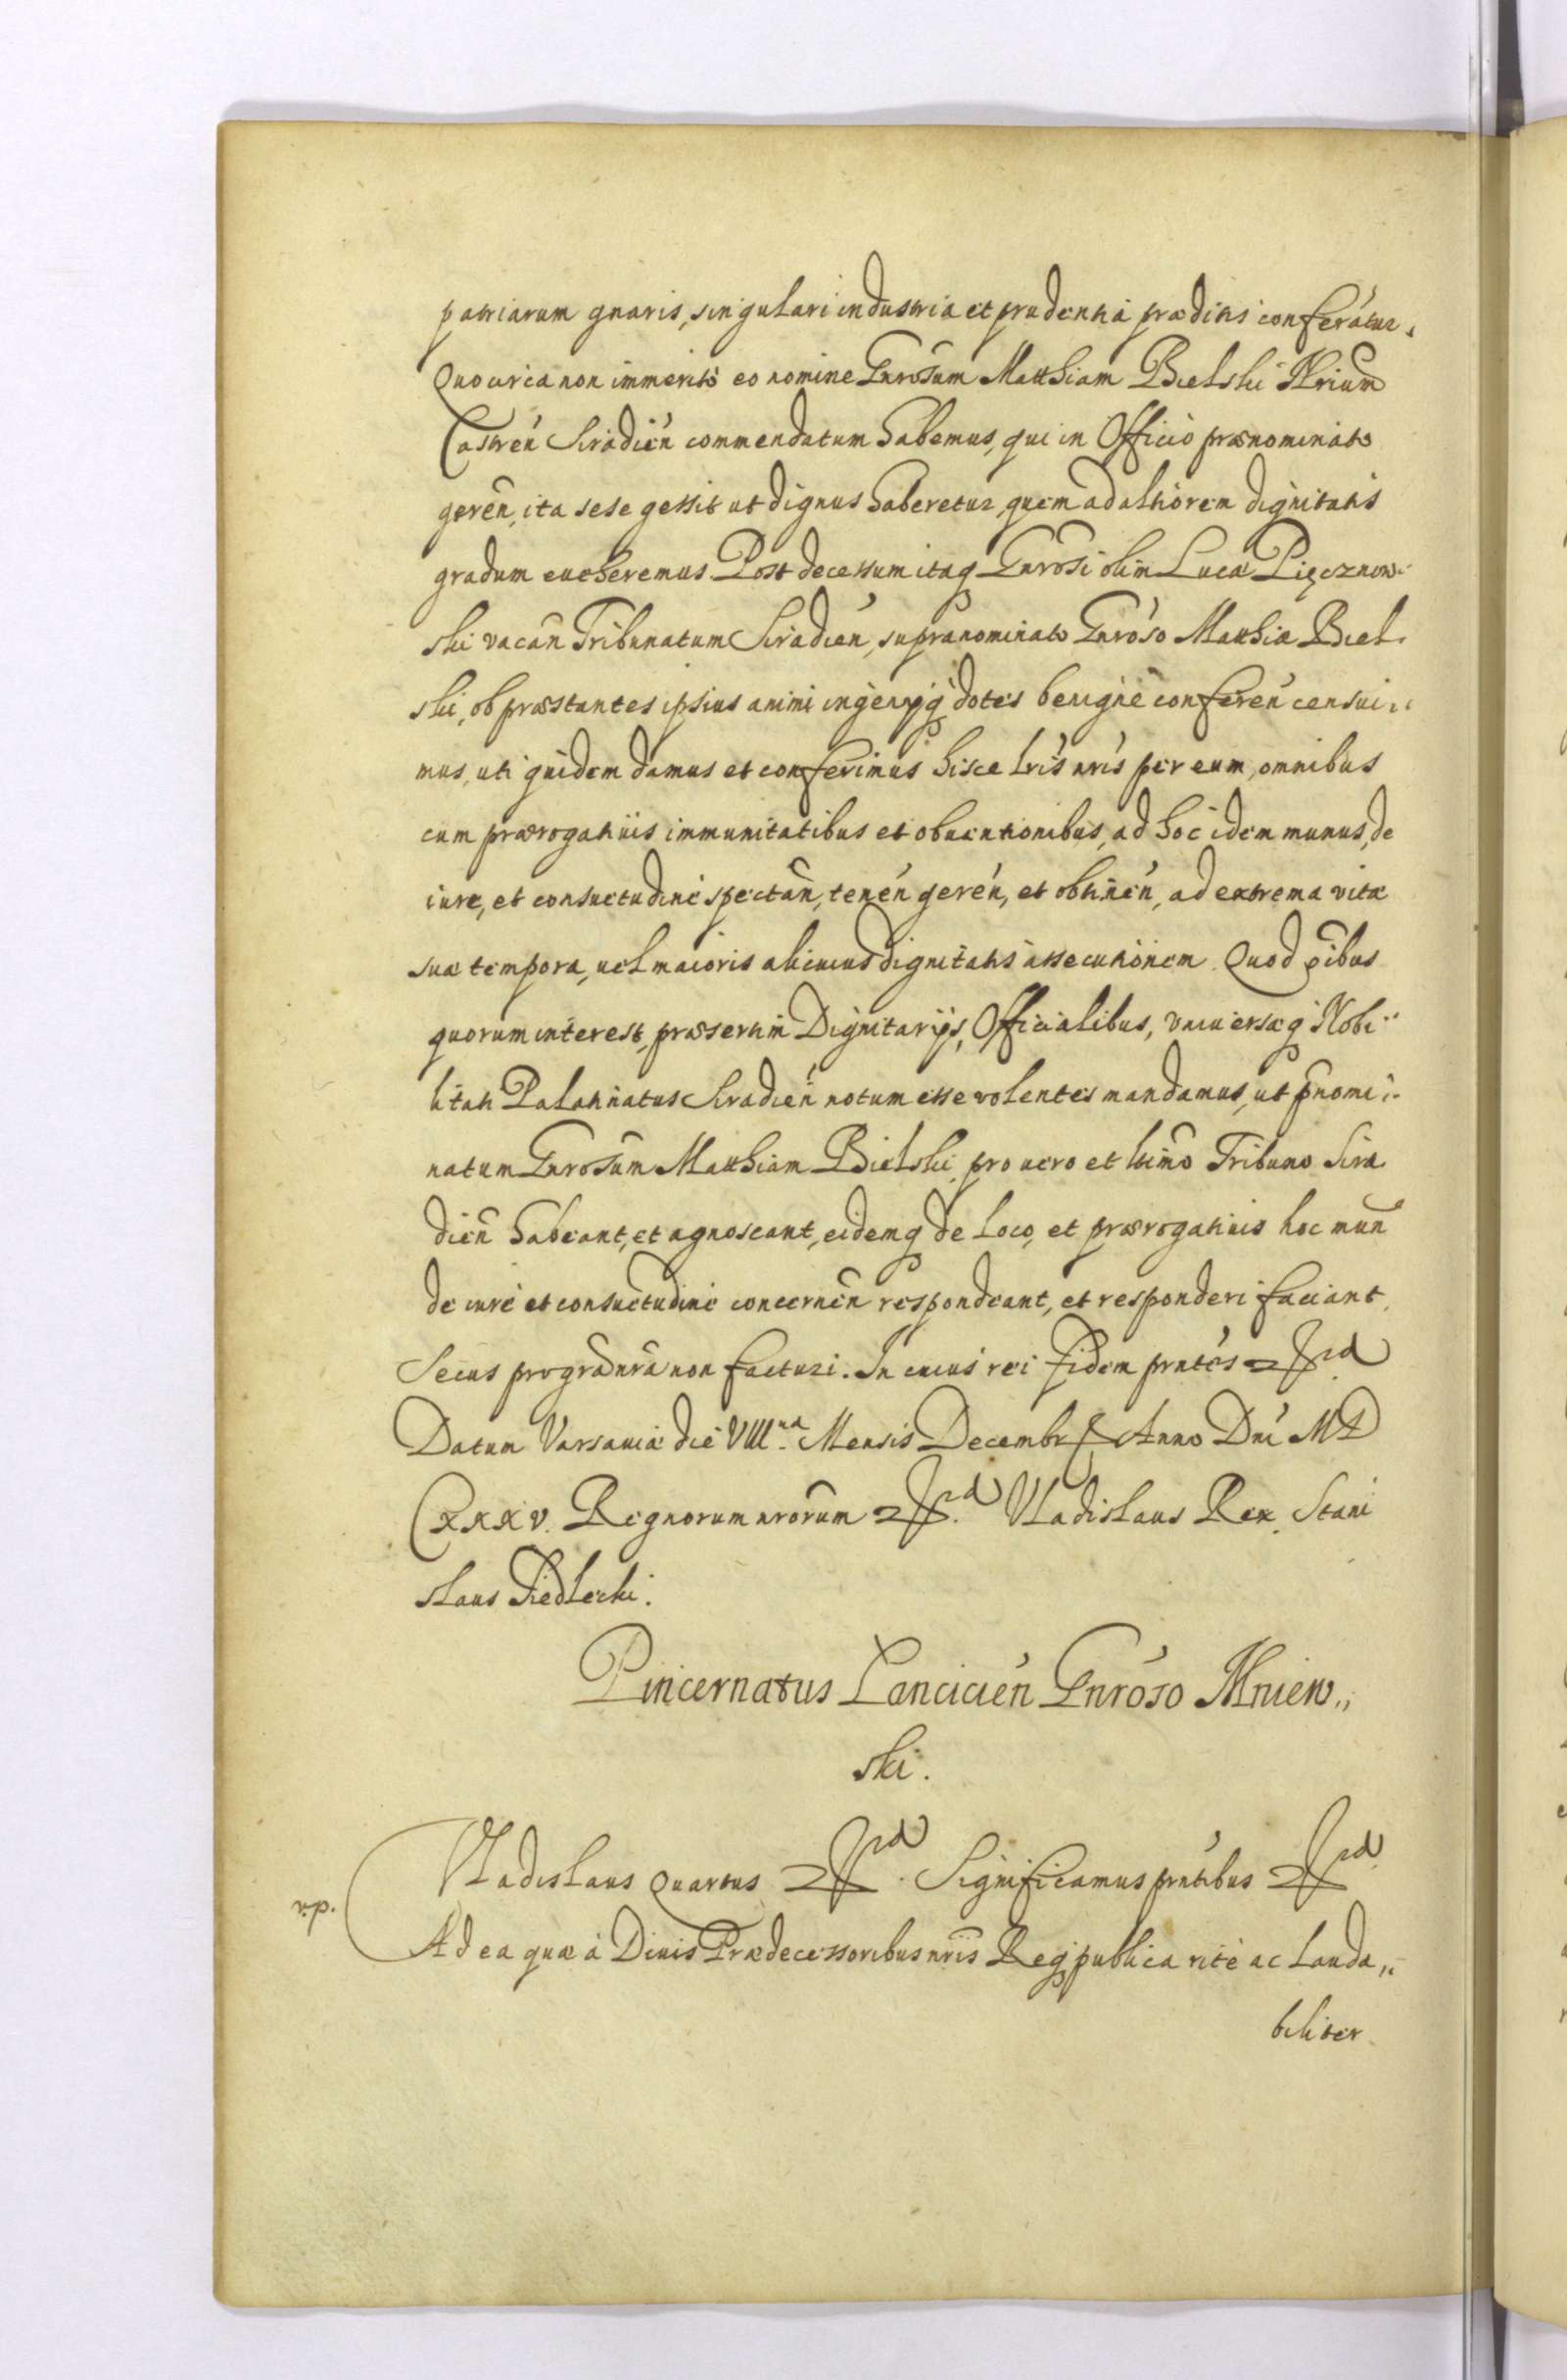 patriarum gnaris, singulari industria et prudentiá præditis conferátur.
Quocirca non immeritò eo nomine Gnrosum Matthiam Bielski Nrium
Castreń Siradień commendatum habemus, qui in Officio prænominato
gereń, ita sese gessit ut dignus haberetur, quem ad altiorem dignitatis
gradum eueheremus. Post decessum itaq Gnrosi olim Lucæ Pięcznow-
ski vacań Tribunatum Siradień, supranominato Gnroso Matthiæ Biel-
ski, ob præstantes ipsius animi ingenijq dotes benignè confereń censui-
mus, uti quidem damus et conferimus hisce lris nris per eum, omnibus
cum prærogatiuis immunitatibus et obuentionibus, ad hoc idem munus, de
iure, et consuetudine spectań, teneń gereń, et obtineń, ad extrema vitæ
suæ tempora, uel maioris alicuius dignitatis assecutionem. Quod oibus
quorum interest, præsertim Dignitarijs, Officialibus, vniuersæq Nobi-
litati Palatinatus Siradień notum esse volentes mandamus, ut pnomi-
natum Gnrosum Matthiam Bielski, pro uero et ltimo Tribuno Sira
dień habeant, et agnoscant, eidemq de loco, et prærogatiuis hoc mun
de iure et consuetudine concerneń respondeant, et responderi faciant.
Secus pro gra nra non facturi. In cuius rei fidem prntes
Datum Varsauiæ die VIII.na Mensis Decembr Anno Dni MD
CXXXV. Regnorum nrorum Vladislaus Rex. Stani
slaus Siedlecki.
Pincernatus Lancicień Gnróso Mniew,,
ski.
Vladislaus Quartus Significamus prntibus
Ad ea quæ á Diuis Prædecessoribus nris Reiq publica ritè ac lauda,,
biliter